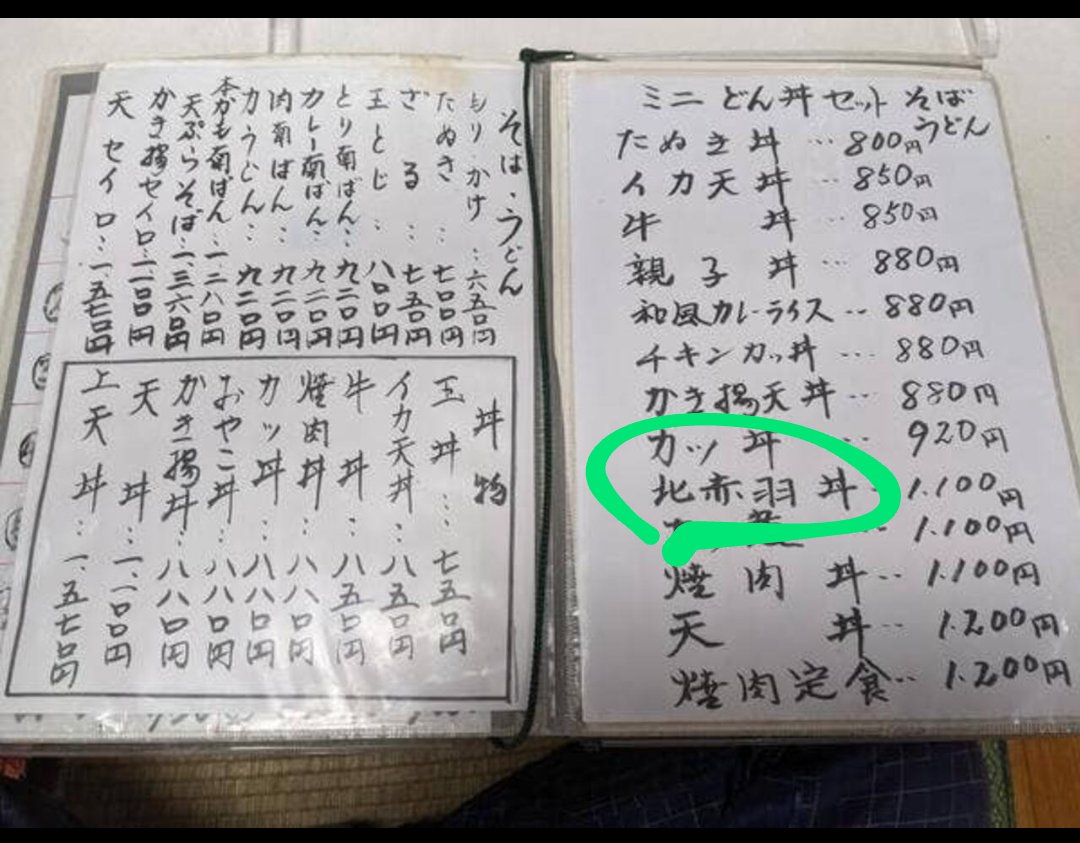 そば・うどん
もり・かけ…六五〇円
たぬき…七〇〇円
ざる…七五〇円
玉とじ…八〇〇円
とり南ばん…九二〇円
カレー南ばん…九二〇円
肉南ばん…九二〇円
力うどん…九二〇円
本かも南ばん…一二八〇円
天ぷらそば…一、三六〇円
かき揚セイロ…一、二〇〇円
天セイロ…一、五七〇円
丼物
玉丼…七五〇円
イカ天丼…八五〇円
牛丼…八五〇円
焼肉丼…八八〇円
カツ丼…八八〇円
おやこ丼…八八〇円
かき揚丼…八八〇円
天丼…一、一〇〇円
上天丼…一、五七〇円
ミニどん丼セット そば
うどん
たぬき丼…800円
イカ天丼…850円
牛丼…850円
親子丼…880円
和風カレーライス…880円
チキンカツ丼…880円
かき揚天丼…880円
カツ丼…920円
北赤羽丼…1.100円
…1.100円
焼肉丼…1.100円
天丼…1.200円
焼肉定食…1.200円